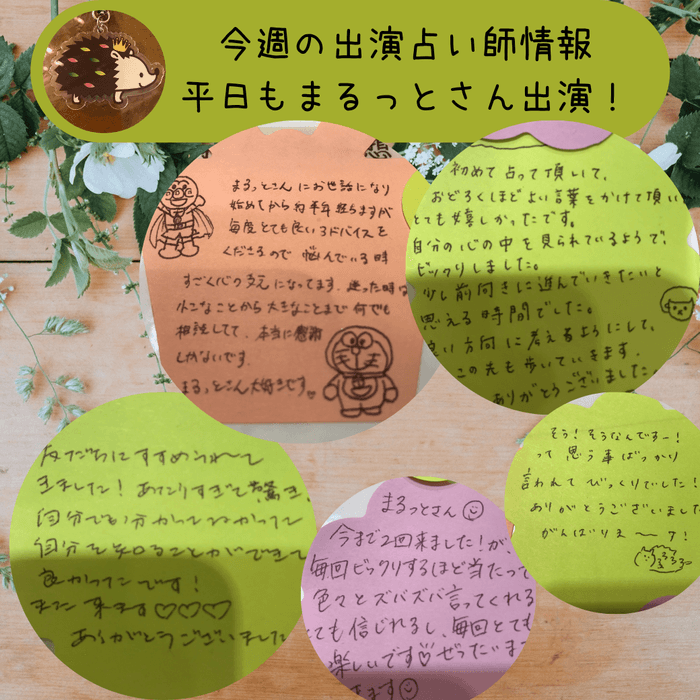 今週の出演占い師情報
平日もまるっとさん出演！
まるっとさんにお世話になり
始めてから約半年経ちますが
毎度とても良いアドバイスを
くださるので 悩んでいる時
すごく心の支えになってます. 迷った時は
小さなことから大きなことまで何でも
相談してて、本当に感謝
しかないです.
まるっとさん大好きです♡
初めて占って頂いて、
おどろくほどよい言葉をかけて頂い
とても嬉しかったです。
自分の心の中を見られているようで、
ビックリしました。
少し前向きに進んでいきたいと
思える時間でした。
良い方向に考えるようにして、
この先も歩いていきます.
ありがとうございました.
友だちにすすめられて
きました！あたりすぎて驚き、
自分でも分かってなかった
自分を知ることができて
良かったです！
また来ます♡♡♡
ありがとうございました
まるっとさん☺
今まで2回来ました！が、
毎回ビックリするほど当たって
色々とズバズバ言ってくれる
とても信じれるし、毎回とても
楽しいです♡ ぜったいまた
きます☺
そう！そうなんですー！
って 思う事ばっかり
言われて びっくりでした！
ありがとうございました
がんばりまーす！